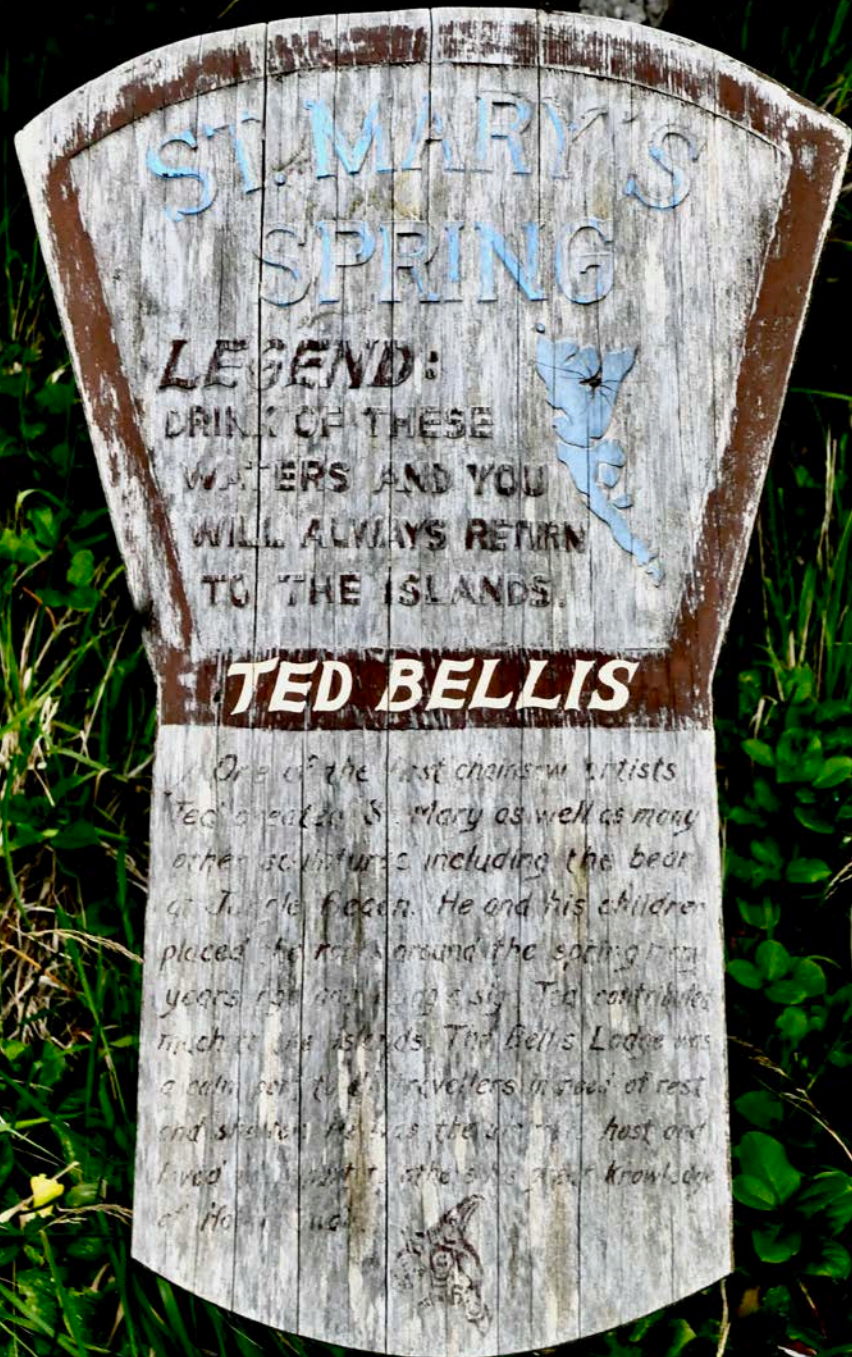 ST. MARY'S
SPRING
LEGEND:
DRINK OF THESE
WATERS AND YOU
WILL ALWAYS RETURN
TO THE ISLANDS.
TED BELLIS
One of the first chainsaw artists
Ted created St. Mary as well as many
other sculptures including the bear
at Jungle Beach. He and his children
placed the rocks around the spring many
years ago and a sign. Ted contributed
much to the islands. The Bellis Lodge was
a calm port to all travellers in need of rest
and shelter. He was the ultimate host and
loved to others his great knowledge
of